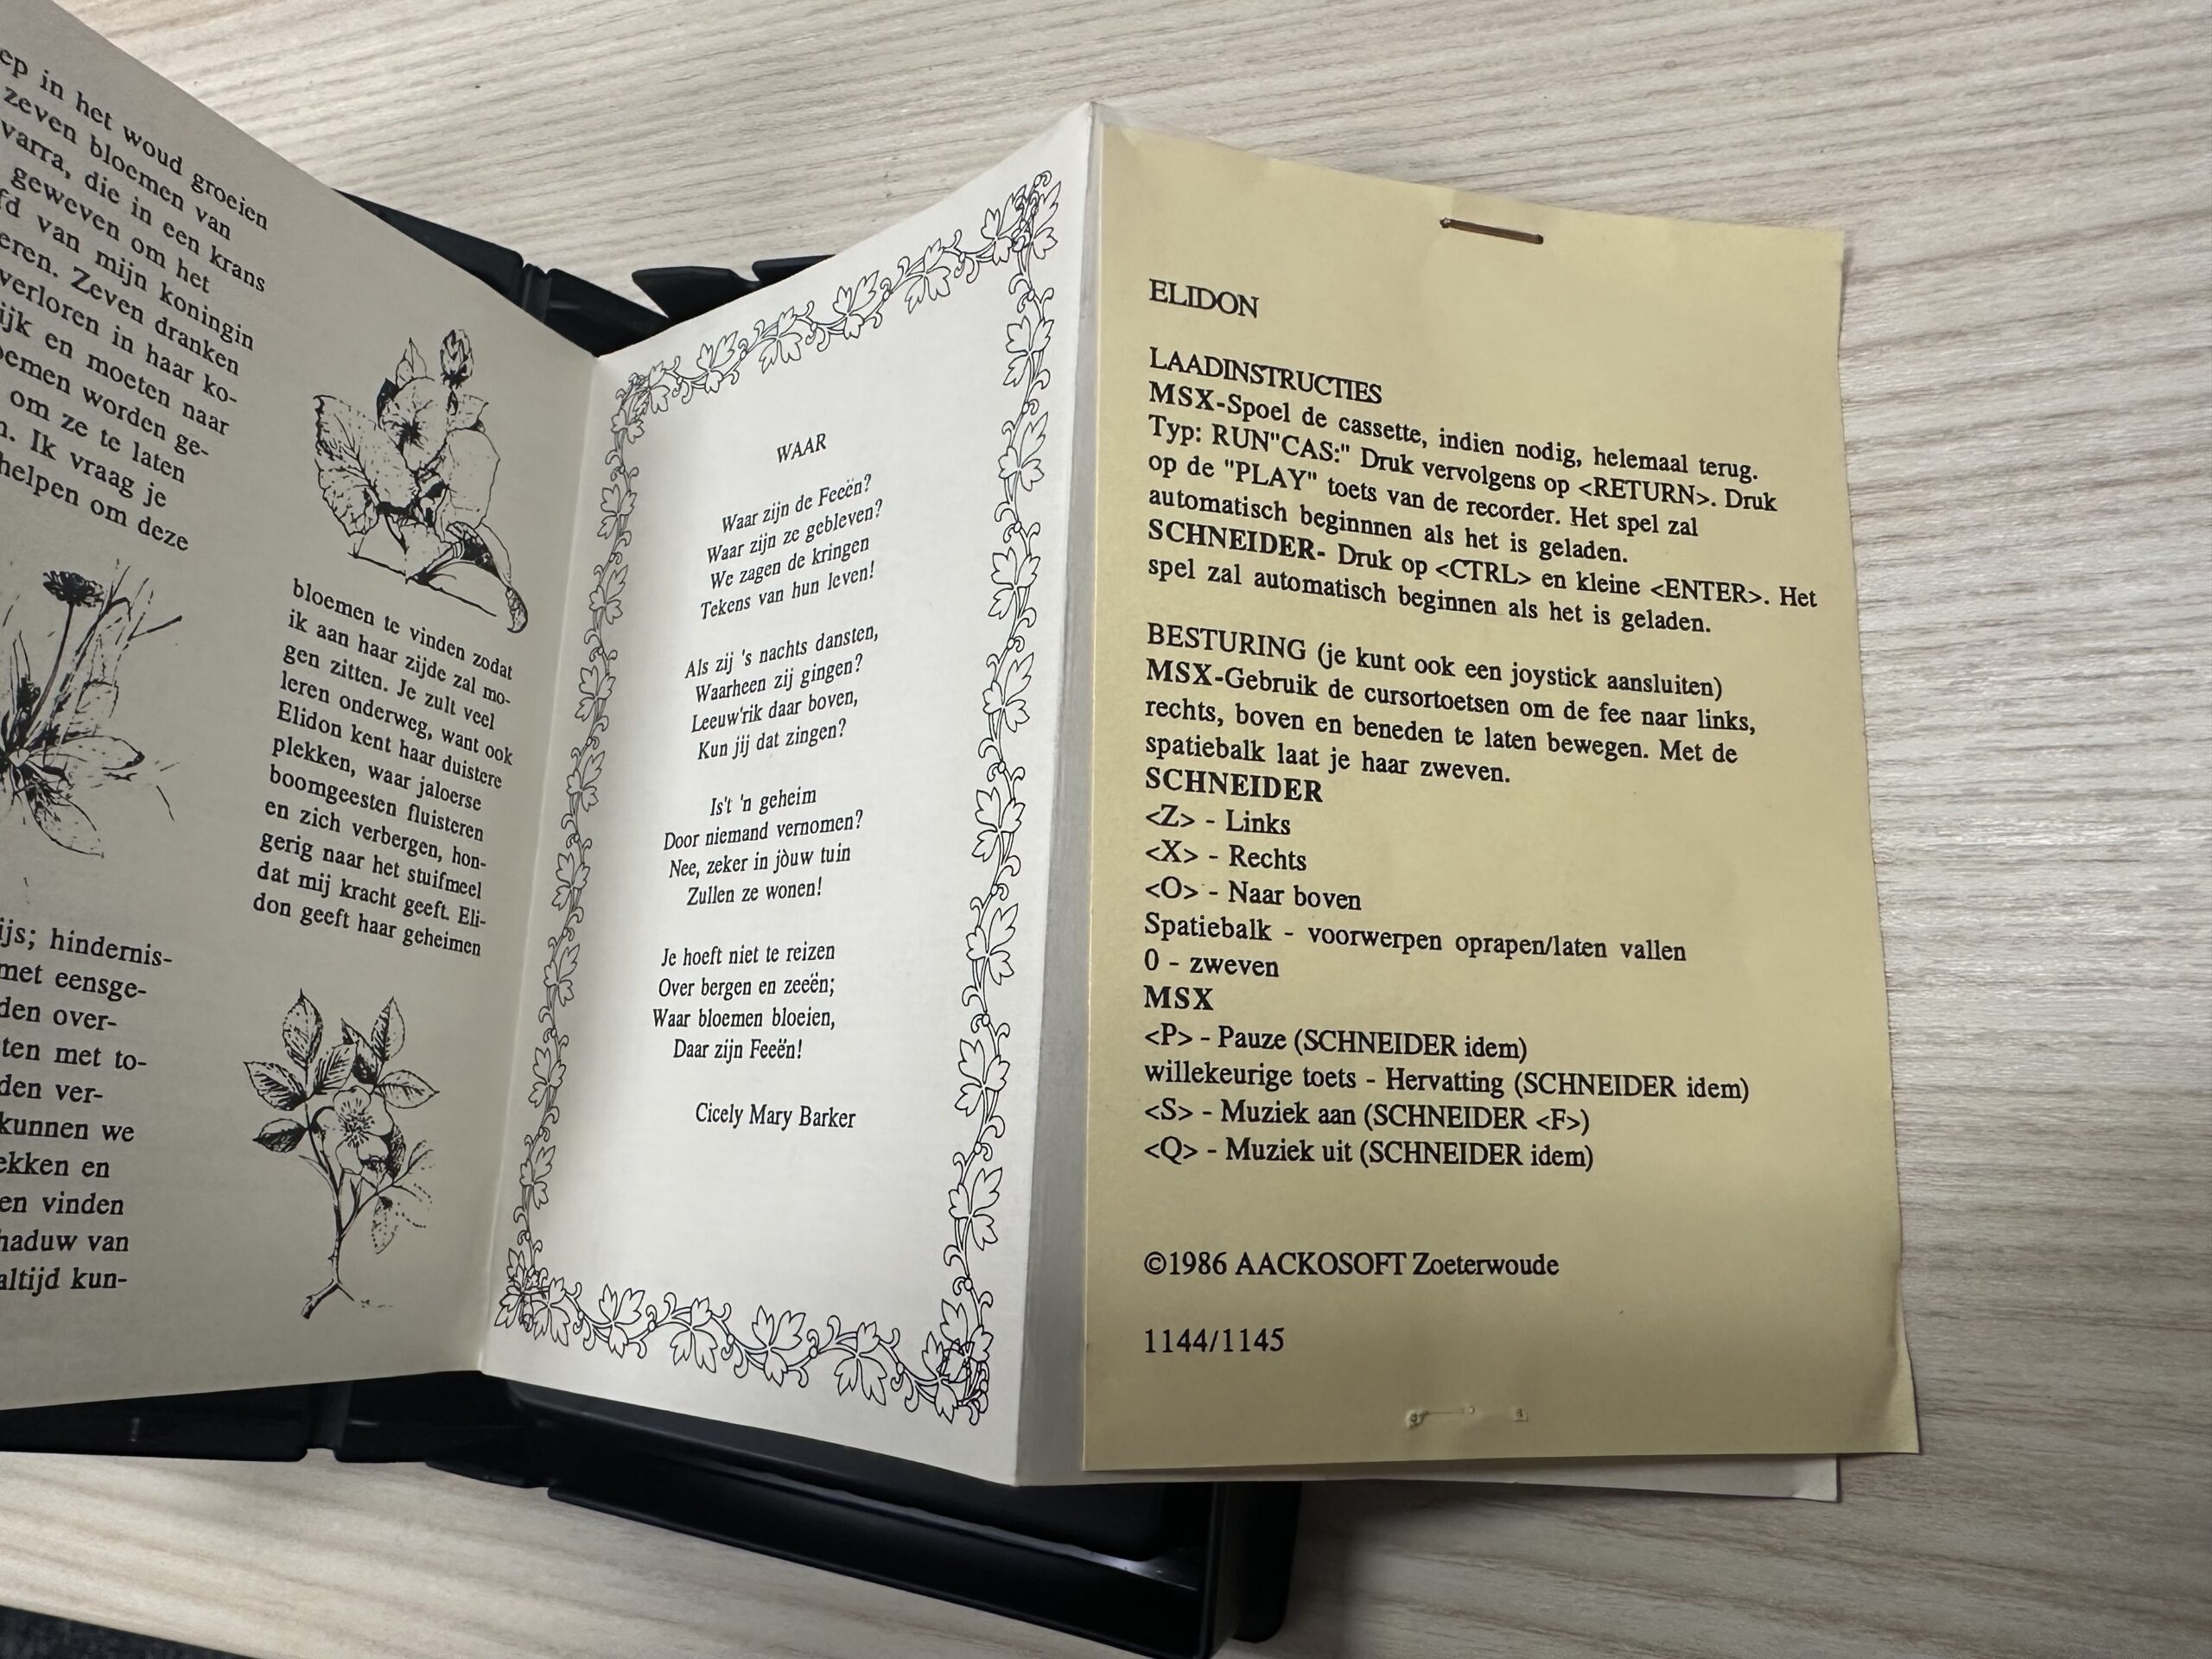 in het woud groeien
zeven bloemen van
die in een krans
geweven om het
van mijn koningin
Zeven dranken
verloren in haar ko-
en moeten naar
worden ge-
om ze te laten
Ik vraag je
helpen om deze
hindernis-
met eensge-
over-
met to-
ver-
kunnen we
en
vinden
van
altijd kun-
bloemen te vinden zodat
ik aan haar zijde zal mo-
gen zitten. Je zult veel
leren onderweg, want ook
Elidon kent haar duistere
plekken, waar jaloerse
boomgeesten fluisteren
en zich verbergen, hon-
gerig naar het stuifmeel
dat mij kracht geeft. Eli-
don geeft haar geheimen
WAAR
Waar zijn de Feeën?
Waar zijn ze gebleven?
We zagen de kringen
Tekens van hun leven!
Als zij 's nachts dansten,
Waarheen zij gingen?
Leeuw'rik daar boven,
Kun jij dat zingen?
Is't 'n geheim
Door niemand vernomen?
Nee, zeker in jòuw tuin
Zullen ze wonen!
Je hoeft niet te reizen
Over bergen en zeeën;
Waar bloemen bloeien,
Daar zijn Feeën!
Cicely Mary Barker
ELIDON
LAADINSTRUCTIES
MSX-Spoel de cassette, indien nodig, helemaal terug.
Typ: RUN"CAS:" Druk vervolgens op <RETURN>. Druk
op de "PLAY" toets van de recorder. Het spel zal
automatisch beginnnen als het is geladen.
SCHNEIDER- Druk op <CTRL> en kleine <ENTER>. Het
spel zal automatisch beginnen als het is geladen.
BESTURING (je kunt ook een joystick aansluiten)
MSX-Gebruik de cursortoetsen om de fee naar links,
rechts, boven en beneden te laten bewegen. Met de
spatiebalk laat je haar zweven.
SCHNEIDER
<Z> - Links
<X> - Rechts
<O> - Naar boven
Spatiebalk - voorwerpen oprapen/laten vallen
0 - zweven
MSX
<P> - Pauze (SCHNEIDER idem)
willekeurige toets - Hervatting (SCHNEIDER idem)
<S> - Muziek aan (SCHNEIDER <F>)
<Q> - Muziek uit (SCHNEIDER idem)
©1986 AACKOSOFT Zoeterwoude
1144/1145